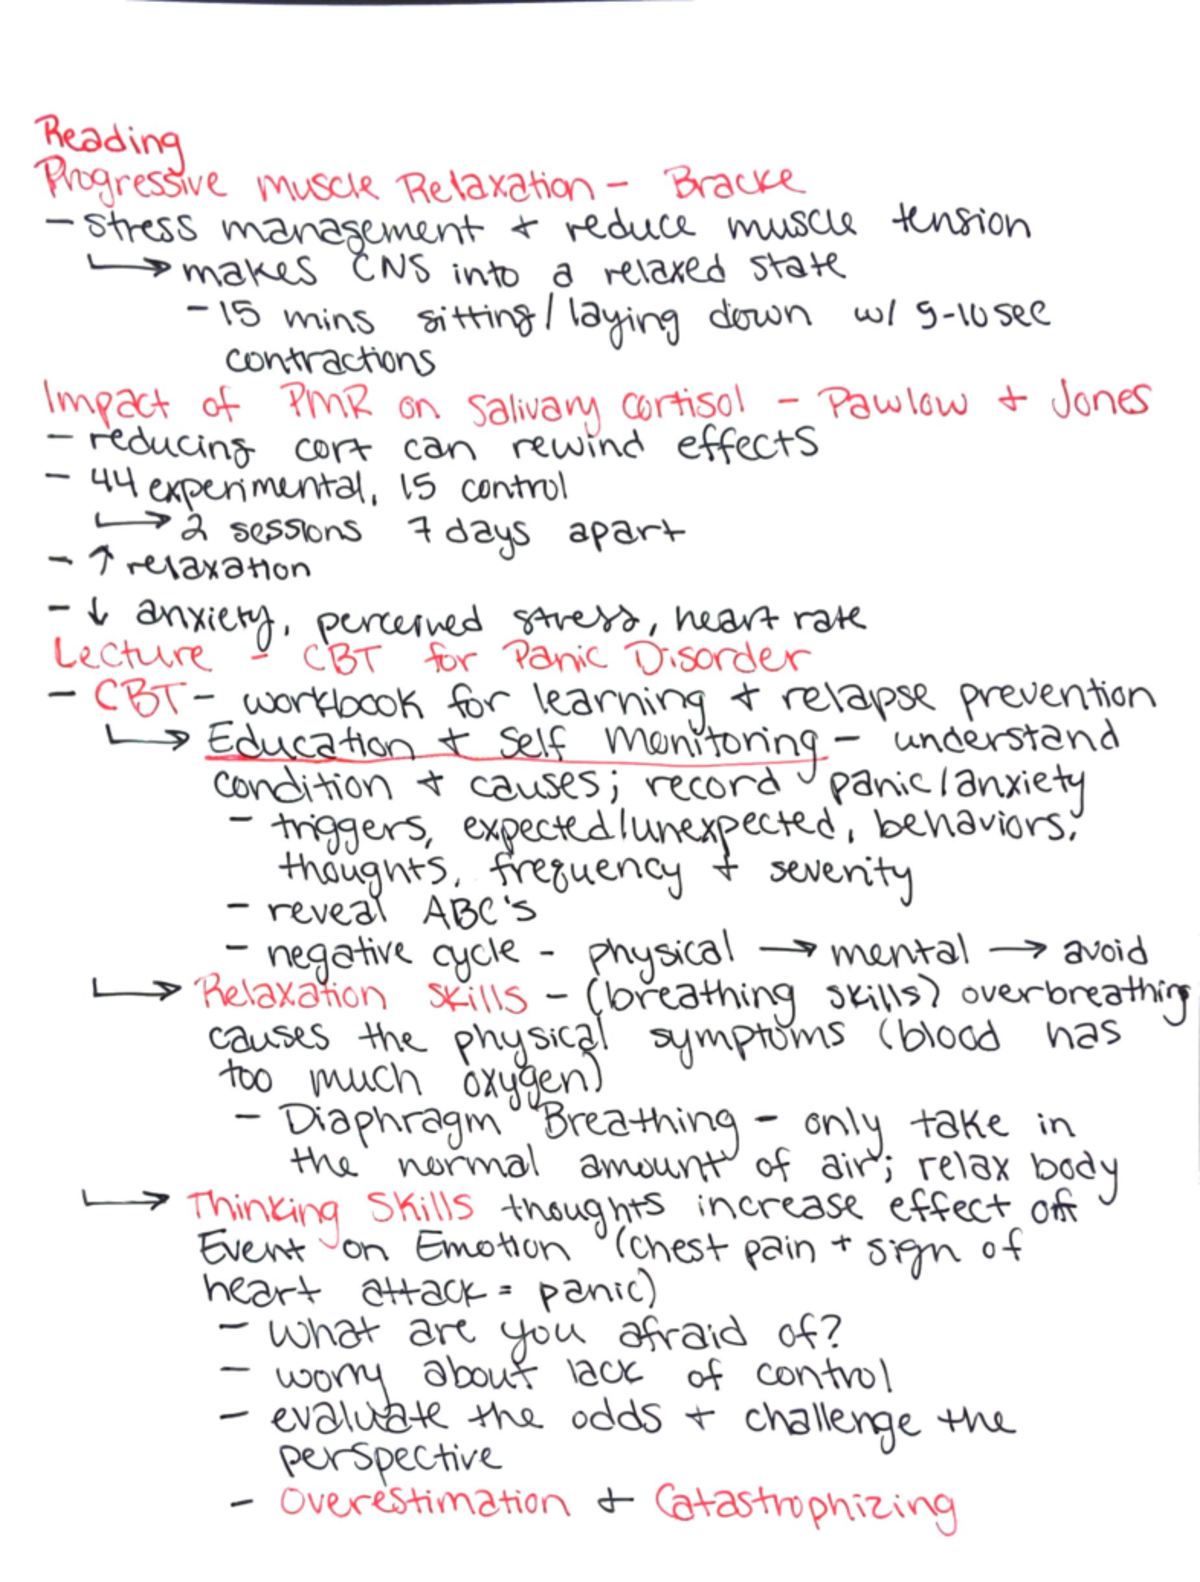 Reading
Progressive muscle Relaxation - Bracke
- stress management + reduce muscle tension
↳ makes CNS into a relaxed state
- 15 mins sitting/laying down w/ 5-10 sec
contractions
Impact of PMR on salivary cortisol - Pawlow + Jones
- reducing cort can rewind effects
- 44 experimental, 15 control
↳ 2 sessions 7 days apart
- ↑ relaxation
- ↓ anxiety, perceived stress, heart rate
Lecture - CBT for Panic Disorder
- CBT - workbook for learning + relapse prevention
↳ Education + Self Monitoring - understand
condition + causes; record panic/anxiety
- triggers, expected/unexpected, behaviors,
thoughts, frequency + severity
- reveal ABC's
- negative cycle - physical → mental → avoid
↳ Relaxation skills - (breathing skills) overbreathing
causes the physical symptoms (blood has
too much oxygen)
- Diaphragm Breathing - only take in
the normal amount of air; relax body
↳ Thinking Skills thoughts increase effect off
Event on Emotion (chest pain + sign of
heart attack = panic)
- what are you afraid of?
- worry about lack of control
- evaluate the odds + challenge the
perspective
- Overestimation + Catastrophizing